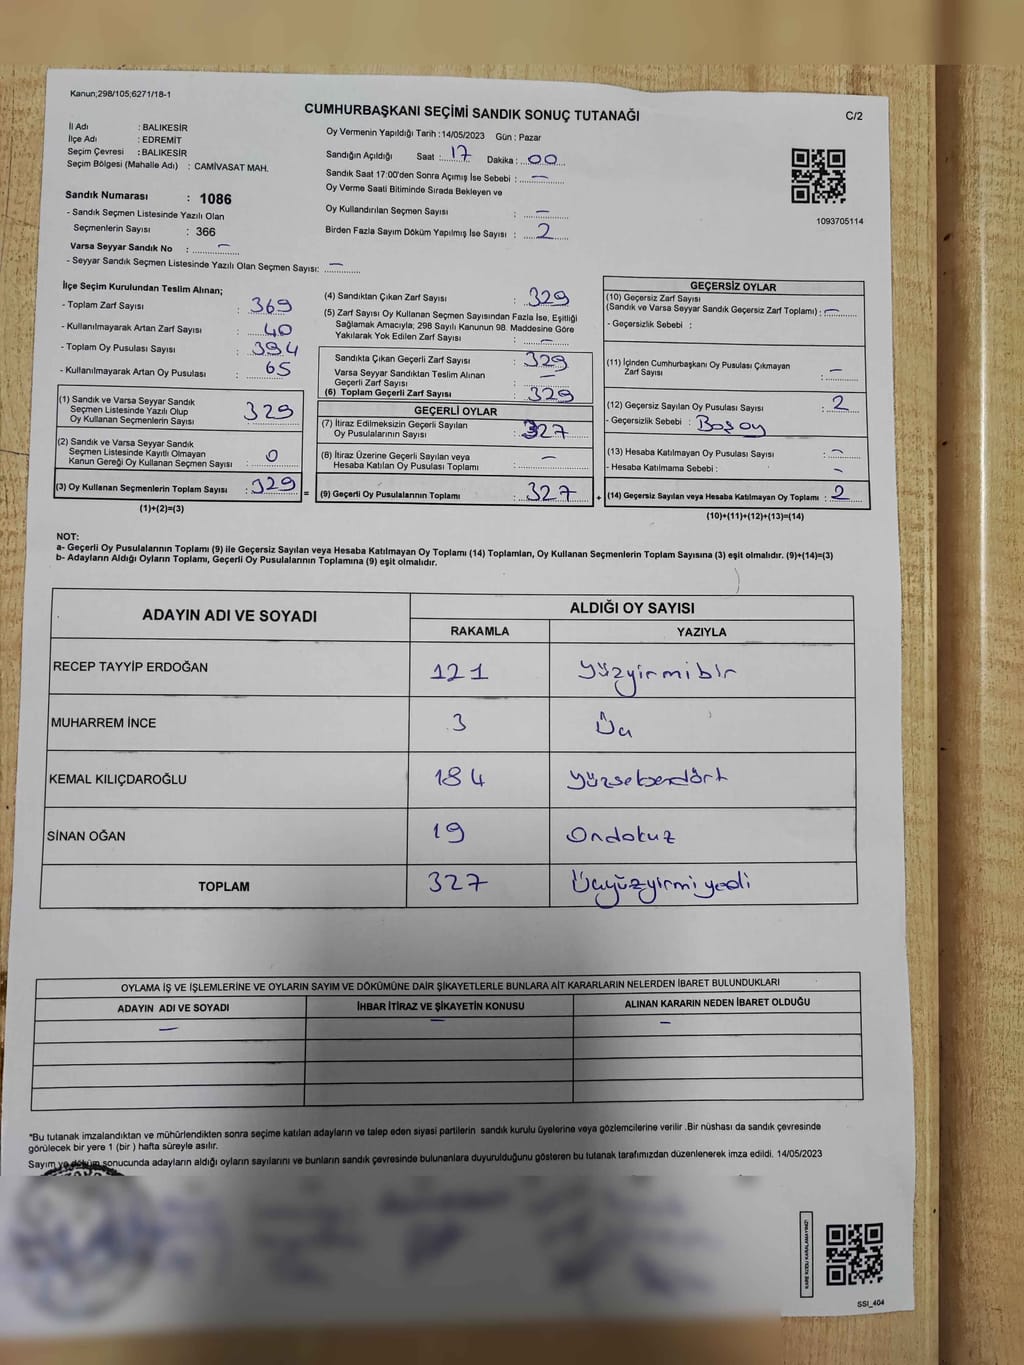 Kanun;298/105;6271/18-1
CUMHURBAŞKANI SEÇİMİ SANDIK SONUÇ TUTANAĞI
C/2
İl Adı : BALIKESİR
İlçe Adı : EDREMİT
Seçim Çevresi : BALIKESİR
Seçim Bölgesi (Mahalle Adı) : CAMİVASAT MAH.
Sandık Numarası : 1086
- Sandık Seçmen Listesinde Yazılı Olan
Seçmenlerin Sayısı : 366
Varsa Seyyar Sandık No : —
- Seyyar Sandık Seçmen Listesinde Yazılı Olan Seçmen Sayısı: —
Oy Vermenin Yapıldığı Tarih :14/05/2023 Gün : Pazar
Sandığın Açıldığı Saat : 17 Dakika : 00
Sandık Saat 17:00'den Sonra Açımış İse Sebebi : —
Oy Verme Saati Bitiminde Sırada Bekleyen ve
Oy Kullandırılan Seçmen Sayısı : —
Birden Fazla Sayım Döküm Yapılmış İse Sayısı : 2
1093705114
İlçe Seçim Kurulundan Teslim Alınan;
- Toplam Zarf Sayısı : 369
- Kullanılmayarak Artan Zarf Sayısı : 40
- Toplam Oy Pusulası Sayısı : 394
- Kullanılmayarak Artan Oy Pusulası : 65
(1) Sandık ve Varsa Seyyar Sandık
Seçmen Listesinde Yazılı Olup
Oy Kullanan Seçmenlerin Sayısı : 329
(2) Sandık ve Varsa Seyyar Sandık
Seçmen Listesinde Kayıtlı Olmayan
Kanun Gereği Oy Kullanan Seçmen Sayısı : 0
(3) Oy Kullanan Seçmenlerin Toplam Sayısı : 329
(1)+(2)=(3)
(4) Sandıktan Çıkan Zarf Sayısı : 329
(5) Zarf Sayısı Oy Kullanan Seçmen Sayısından Fazla İse, Eşitliği
Sağlamak Amacıyla; 298 Sayılı Kanunun 98. Maddesine Göre
Yakılarak Yok Edilen Zarf Sayısı : —
Sandıkta Çıkan Geçerli Zarf Sayısı : 329
Varsa Seyyar Sandıktan Teslim Alınan
Geçerli Zarf Sayısı : —
(6) Toplam Geçerli Zarf Sayısı : 329
GEÇERLİ OYLAR
(7) İtiraz Edilmeksizin Geçerli Sayılan
Oy Pusulalarının Sayısı : 327
(8) İtiraz Üzerine Geçerli Sayılan veya
Hesaba Katılan Oy Pusulası Toplamı : —
= (9) Geçerli Oy Pusulalarının Toplamı : 327 +
GEÇERSİZ OYLAR
(10) Geçersiz Zarf Sayısı
(Sandık ve Varsa Seyyar Sandık Geçersiz Zarf Toplamı) : —
- Geçersizlik Sebebi :
(11) İçinden Cumhurbaşkanı Oy Pusulası Çıkmayan
Zarf Sayısı : —
(12) Geçersiz Sayılan Oy Pusulası Sayısı : 2
- Geçersizlik Sebebi : Boş oy
(13) Hesaba Katılmayan Oy Pusulası Sayısı : —
- Hesaba Katılmama Sebebi : —
(14) Geçersiz Sayılan veya Hesaba Katılmayan Oy Toplamı : 2
(10)+(11)+(12)+(13)=(14)
NOT:
a- Geçerli Oy Pusulalarının Toplamı (9) ile Geçersiz Sayılan veya Hesaba Katılmayan Oy Toplamı (14) Toplamları, Oy Kullanan Seçmenlerin Toplam Sayısına (3) eşit olmalıdır. (9)+(14)=(3)
b- Adayların Aldığı Oyların Toplamı, Geçerli Oy Pusulalarının Toplamına (9) eşit olmalıdır.
ADAYIN ADI VE SOYADI ALDIĞI OY SAYISI
RAKAMLA YAZIYLA
RECEP TAYYİP ERDOĞAN 121 Yüzyirmibir
MUHARREM İNCE 3 Üç
KEMAL KILIÇDAROĞLU 184 Yüzseksendört
SİNAN OĞAN 19 Ondokuz
TOPLAM 327 Üçyüzyirmiyedi
OYLAMA İŞ VE İŞLEMLERİNE VE OYLARIN SAYIM VE DÖKÜMÜNE DAİR ŞİKAYETLERLE BUNLARA AİT KARARLARIN NELERDEN İBARET BULUNDUKLARI
ADAYIN ADI VE SOYADI İHBAR İTİRAZ VE ŞİKAYETİN KONUSU ALINAN KARARIN NEDEN İBARET OLDUĞU
— — —
*Bu tutanak imzalandıktan ve mühürlendikten sonra seçime katılan adayların ve talep eden siyasi partilerin sandık kurulu üyelerine veya gözlemcilerine verilir .Bir nüshası da sandık çevresinde
görülecek bir yere 1 (bir ) hafta süreyle asılır.
Sayım ve döküm sonucunda adayların aldığı oyların sayılarını ve bunların sandık çevresinde bulunanlara duyurulduğunu gösteren bu tutanak tarafımızdan düzenlenerek imza edildi. 14/05/2023
KARE KODU KARALAMAYINIZ!
SSI_404